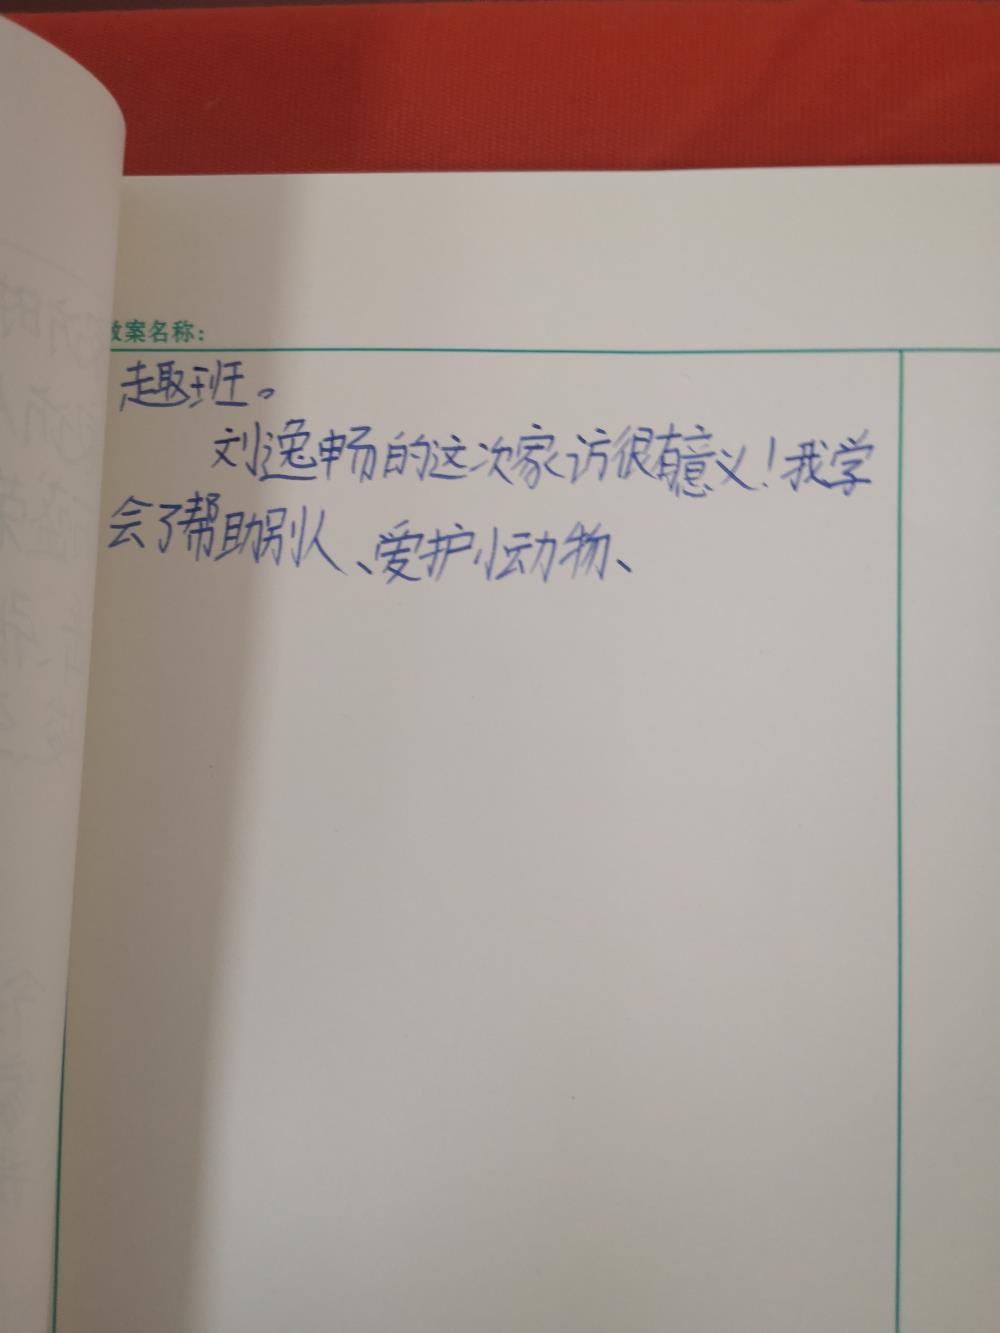 教案名称：
趣班。
刘逸畅的这次家访很有意义！我学
会了帮助别人、爱护小动物、